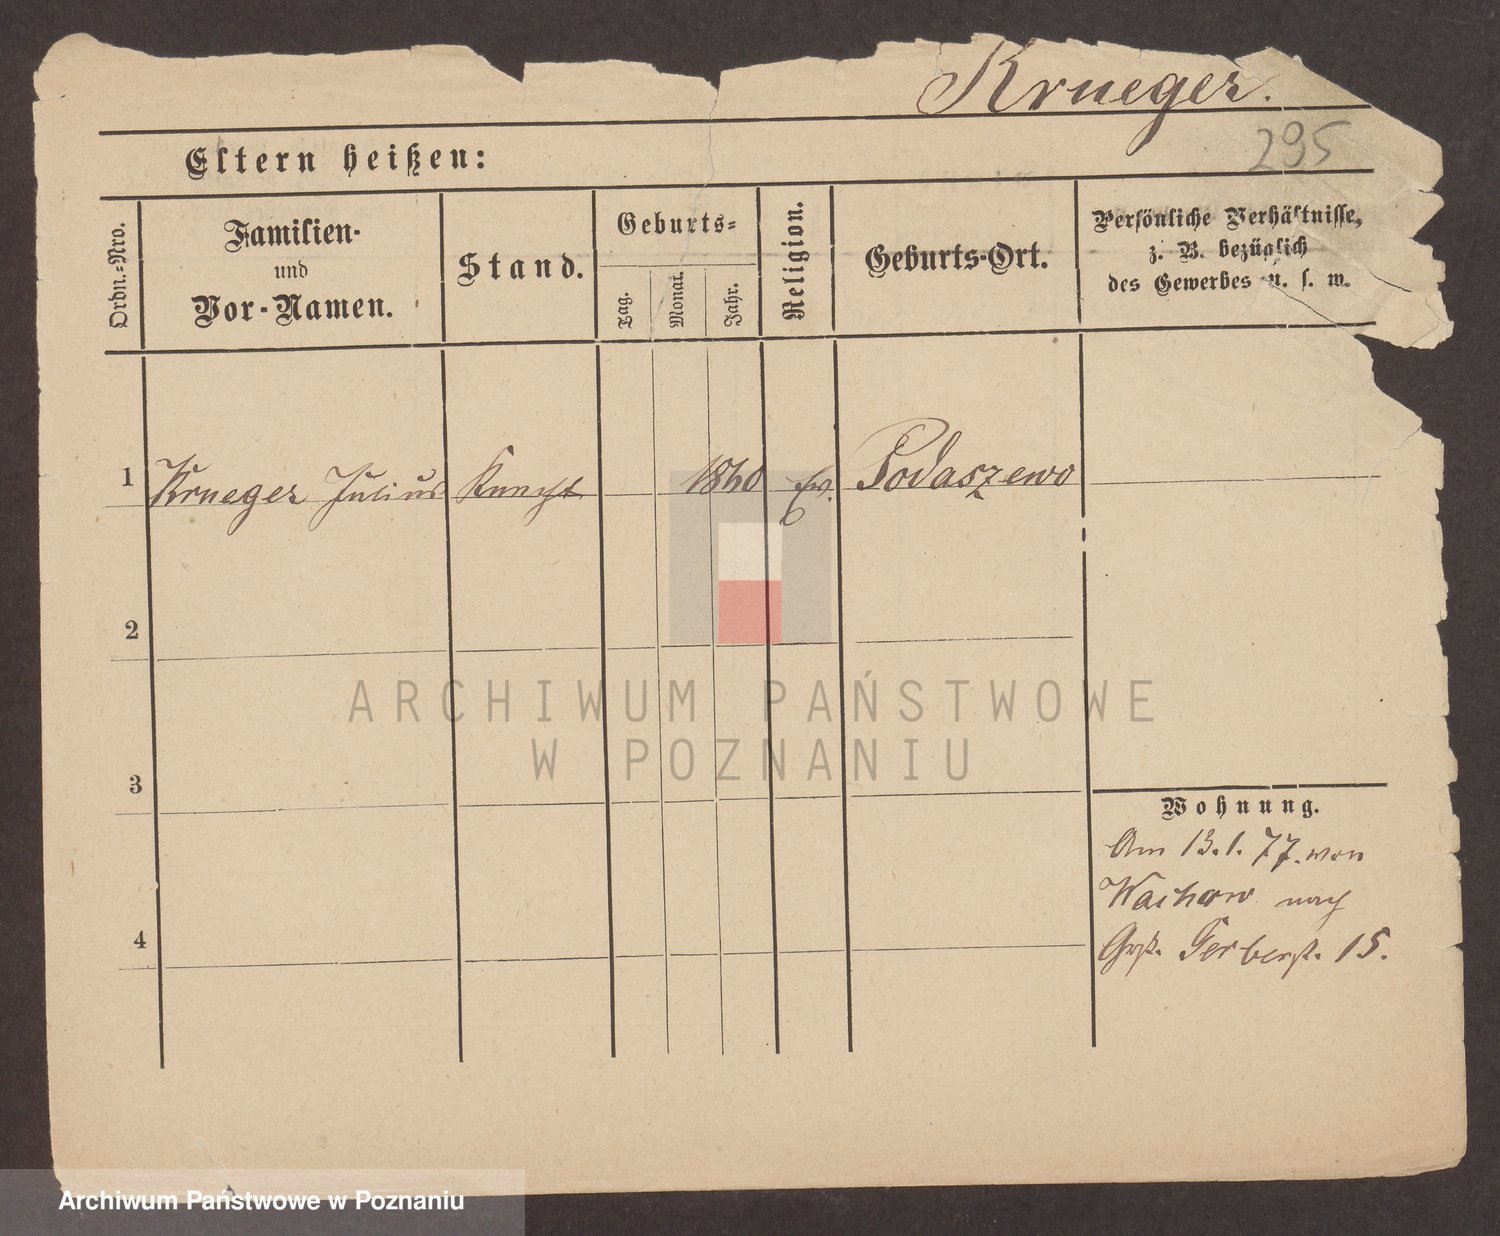 Krueger.
295
Eltern heißen:
Ordn.=Nro.
Familien-
und
Vor-Namen.
Stand.
Geburts=
Tag.
Monat.
Jahr.
Religion.
Geburts-Ort.
Persönliche Verhältnisse,
z. B. bezüglich
des Gewerbes u. s. w.
1 Krueger Julius Knecht 1860 Ev. Podaszewo
2
ARCHIWUM PAŃSTWOWE
W POZNANIU
3
Wohnung.
Am 13.1.77. von
Wachow nach
Grß. Gerberst. 15.
4
Archiwum Państwowe w Poznaniu